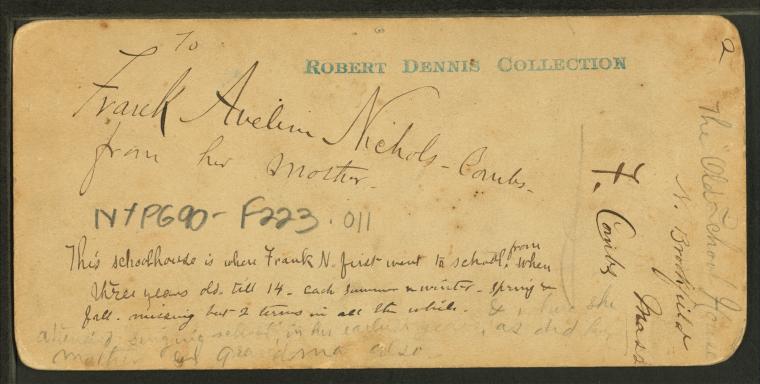 To
ROBERT DENNIS COLLECTION
Frank Aveline Nichols-Combs-
from her Mother-
NYPG90-F223.011
This schoolhouse is where Frank N. first went to school, from when
three years old- till 14- each summer & winter- spring &
fall- missing but 2 terms in all the while.
attended singing school, in her earliest as did her
Mother & grandma also
2
The Old School House
N. Brookfield
Mass
F. Combs